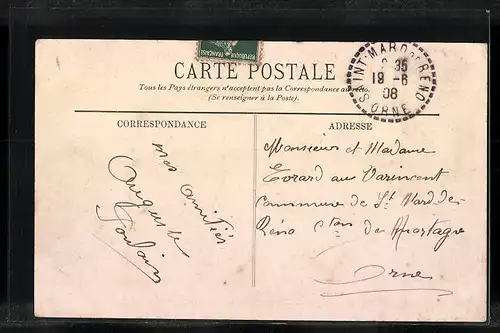 CARTE POSTALE
Tous les Pays étrangers n'acceptent pas la Correspondance au recto.
(Se renseigner à la Poste).
SAINT-MARD-DE-RENO
8 35
19 -6
08
ORNE
CORRESPONDANCE
mes amitiés
Auguste
ADRESSE
Monsieur et Madame
Evrard au Varincent
Commune de St Mard de
Réno Cton de Mortagne
Orne